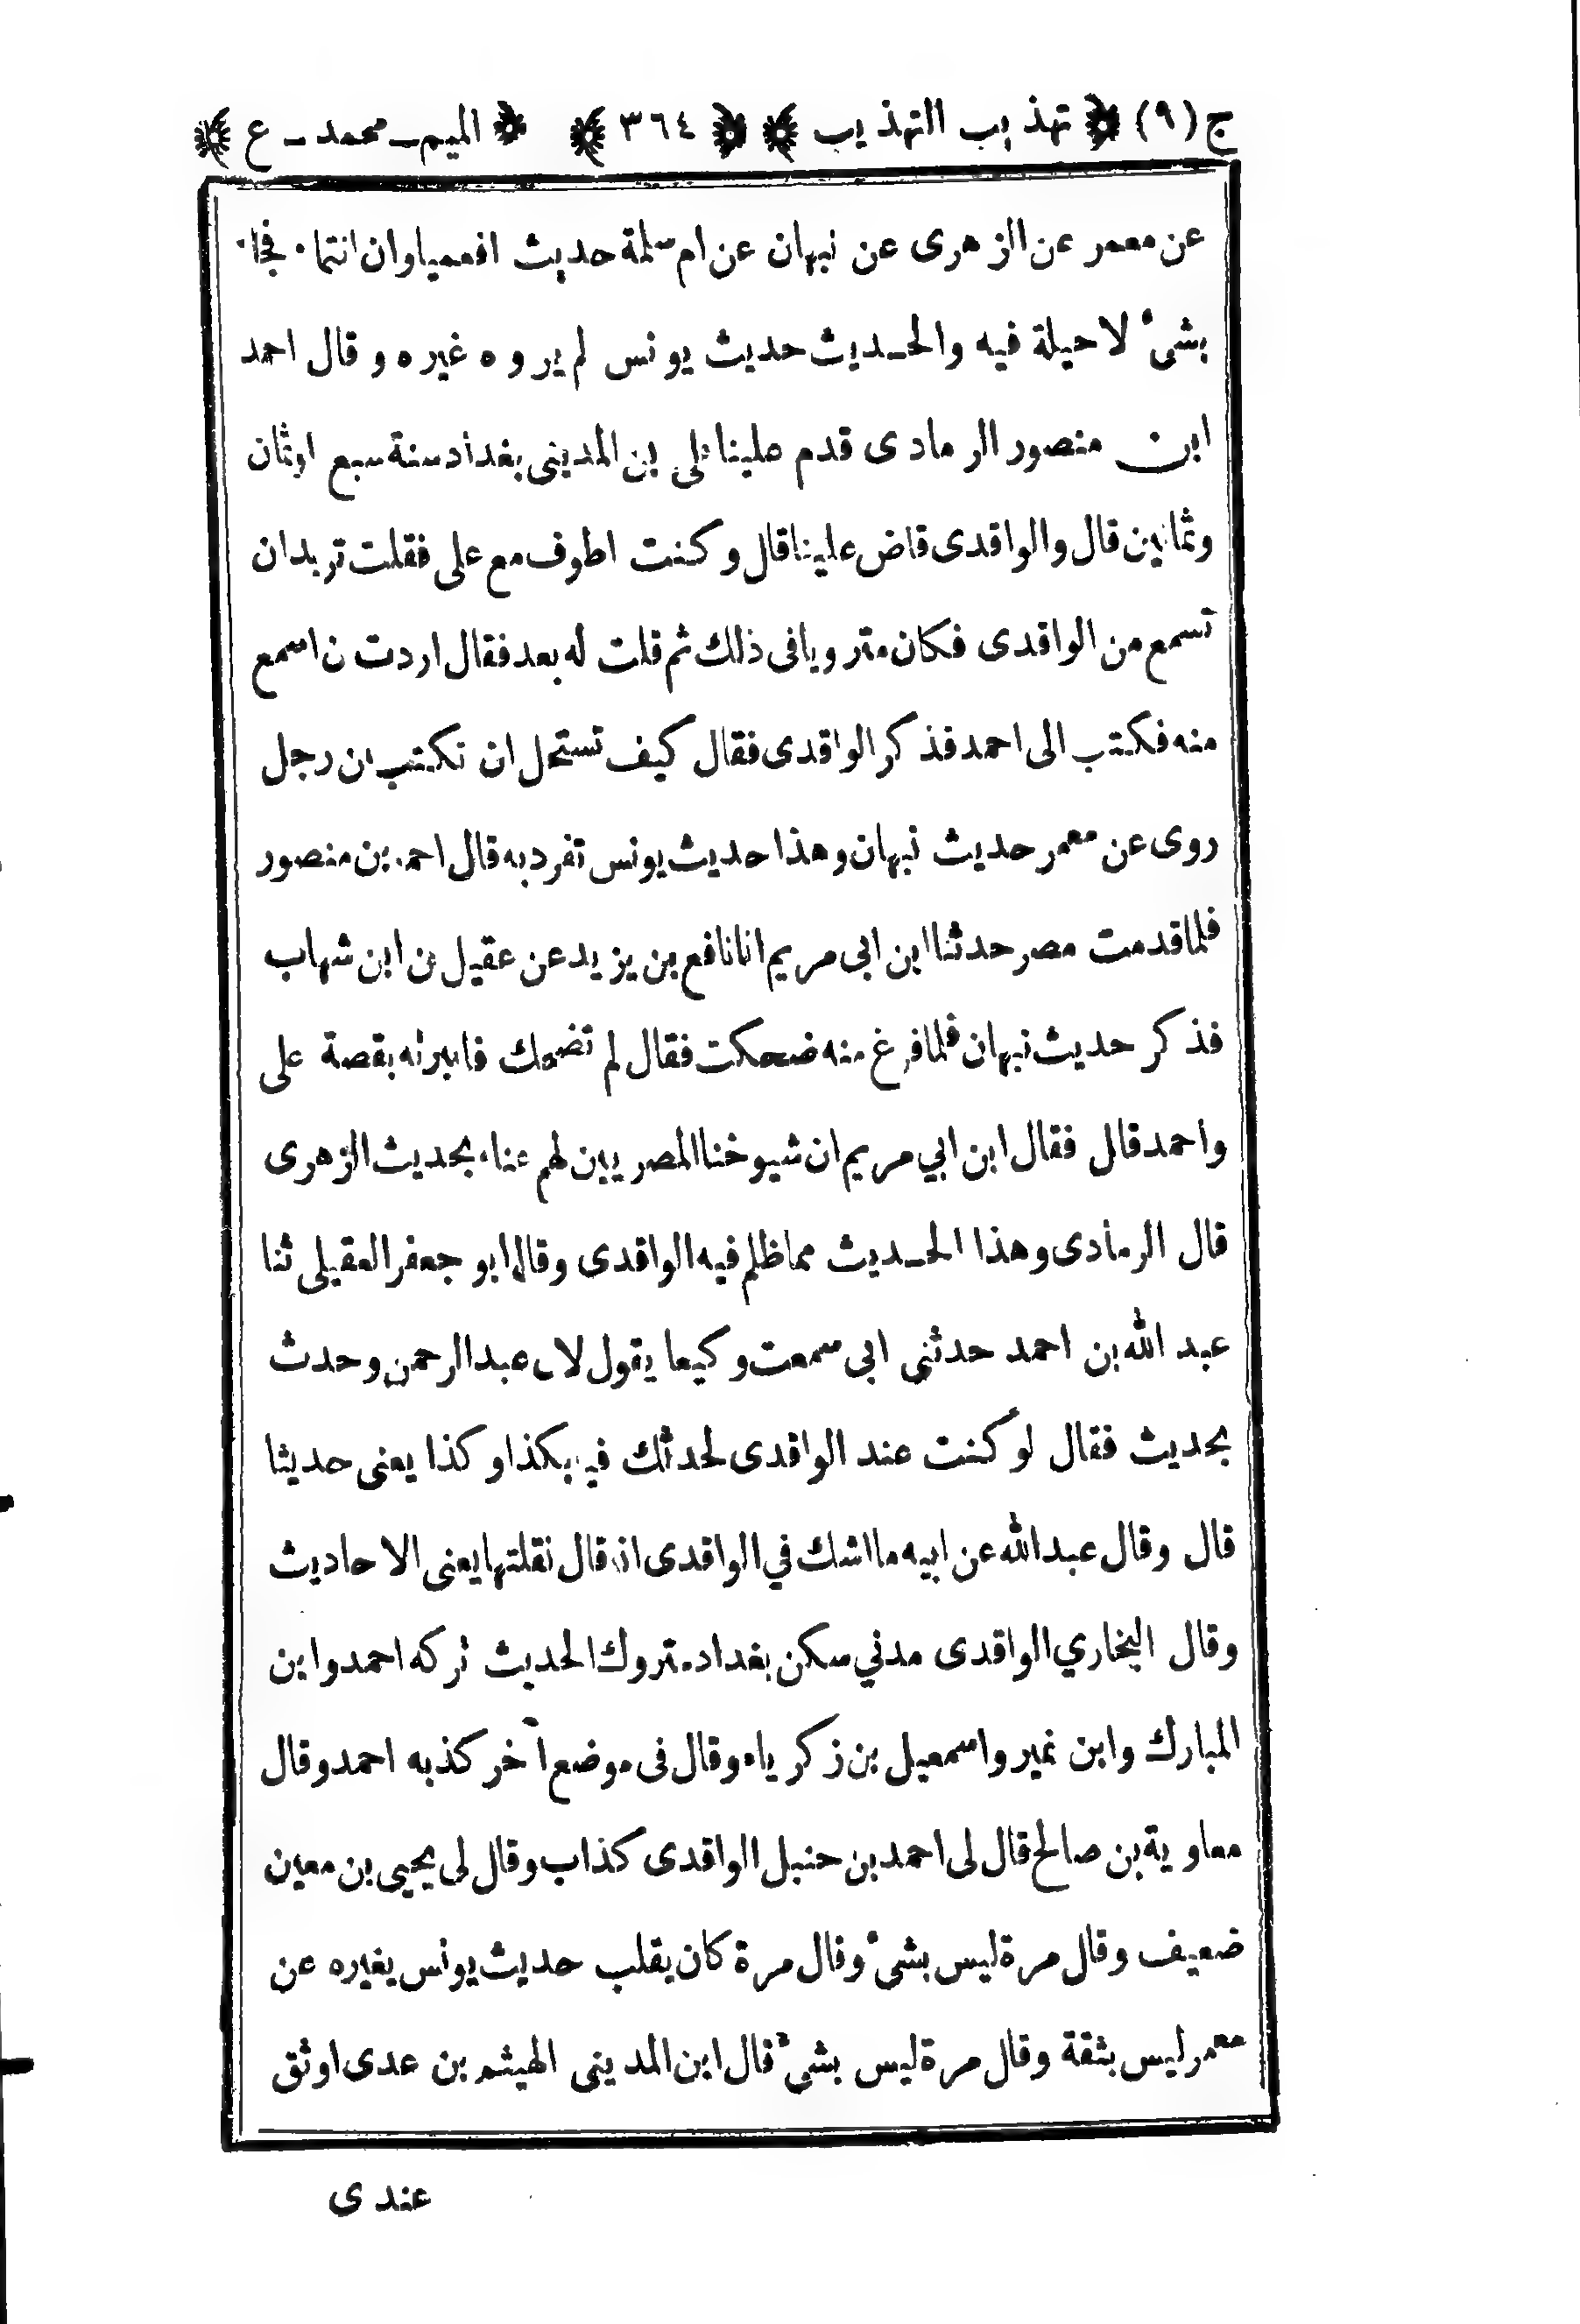 ج (٩) ﴿ تهذيب التهذيب ﴾ ﴿ ٣٦٤ ﴾ ﴿ الميم ـ محمد ـ ع ﴾
عن معمر عن الزهرى عن نبهان عن ام سلمة حديث افعمياوان انتما٠ فجاء
بشىء لا حيلة فيه والحديث حديث يونس لم يروه غيره وقال احمد
ابن منصور الرمادى قدم علينا على بن المدينى بغداد سنة سبع اوثمان
وثمانين قال والواقدى قاض علينا قال وكنت اطوف مع على فقلت تريد ان
تسمع من الواقدى فكان مترويا فى ذلك ثم قلت له بعد فقال اردت ن اسمع
منه فكتب الى احمد فذكر الواقدى فقال كيف تستحل ان تكتب عن رجل
روى عن معمر حديث نبهان وهذا حديث يونس تفرد به قال احمد بن منصور
فلما قدمت مصر حدثنا ابن ابى مريم انا نافع بن يزيد عن عقيل عن ابن شهاب
فذكر حديث نبهان فلما فرغ منه ضحكت فقال لم تضحك فاخبرته بقصة على
واحمد قال فقال ابن ابي مريم ان شيوخنا المصريين لهم عناء بحديث الزهرى
قال الرمادى وهذا الحديث مما ظلم فيه الواقدى وقال ابو جعفر العقيلى ثنا
عبد الله بن احمد حدثنى ابى سمعت وكيعا يقول لابى عبد الرحمن وحدث
بحديث فقال لو كنت عند الواقدى لحدثك فيه بكذا وكذا يعنى حديثا
قال وقال عبد الله عن ابيه ما اشك في الواقدى انه قال نقلتها يعنى الاحاديث
وقال البخاري الواقدى مدني سكن بغداد متروك الحديث تركه احمد وابن
المبارك وابن نمير واسمعيل بن زكرياء وقال فى موضع آخر كذبه احمد وقال
معاوية بن صالح قال لى احمد بن حنبل الواقدى كذاب وقال لى يحيى بن معين
ضعيف وقال مرة ليس بشىء وقال مرة كان يقلب حديث يونس يغيره عن
معمر ليس بثقة وقال مرة ليس بشىء قال ابن المدينى الهيثم بن عدى اوثق
عندى